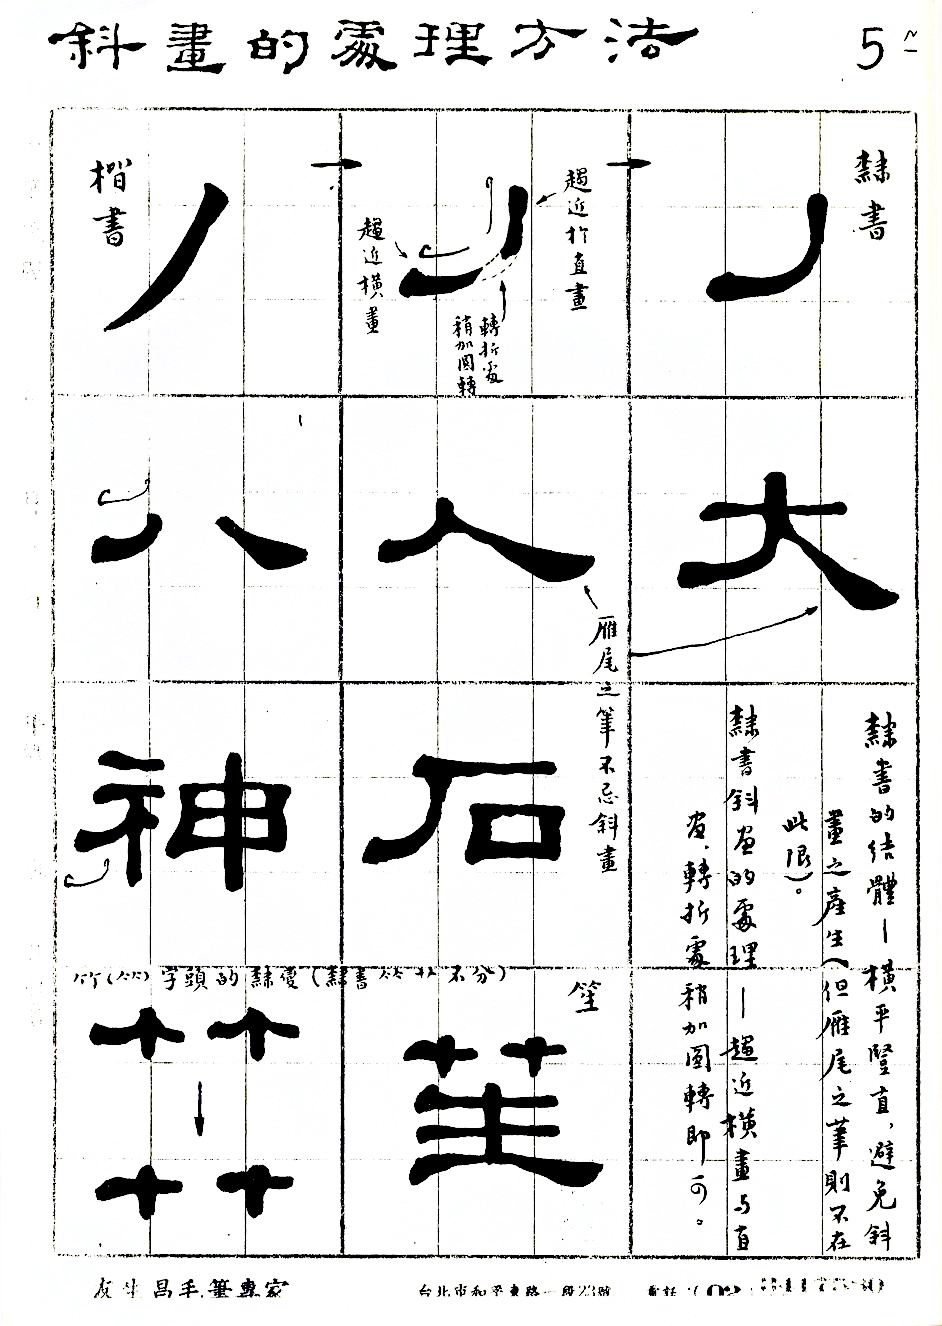 斜畫的處理方法
5
楷書
隸書
趨近橫畫
趨近於直畫
轉折處
稍加圓轉
八
人
大
雁尾之筆不忌斜畫
神
石
隸書的結體－橫平豎直，避免斜
畫之產生（但雁尾之筆則不在
此限）。
隸書斜畫的處理－趨近橫畫與直
畫，轉折處稍加圓轉即可。
竹(竹)字頭的隸變(隸書竹艸不分)
笙
友生昌毛筆專家
台北市和平東路一段23號
電話